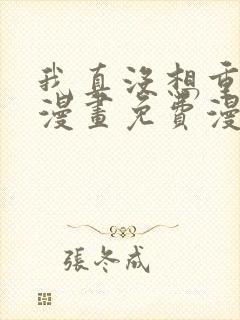 我真没想重
漫畫免費漫
張冬成